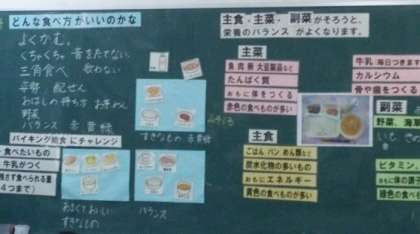 どんな食べ方がいいのかな
よくかむ。
くちゃくちゃ 音をたてない
三角食べ 歌わない
姿勢 配ぜん
おはしの持ち方 お茶わん
野菜
バランス 赤黄緑
すきなもの 赤黄緑
バイキング給食 にチャレンジ
食べたいもの
牛乳がつく
残さず食べられる量
4つまで)
すきなもの
バランス
主食・主菜・副菜がそろうと、
栄養のバランス がよくなります。
主菜
魚 肉 卵 大豆製品など
たんぱく質
おもに体をつくる
赤色の食べものが多い
主食
ごはん パン めん類など
炭水化物の多いもの
おもにエネルギー
黄色の食べものが多い
牛乳(毎日つきます
カルシウム
骨や歯をつくる
副菜
野菜、海草
おもに体の調子
緑色の食べもの